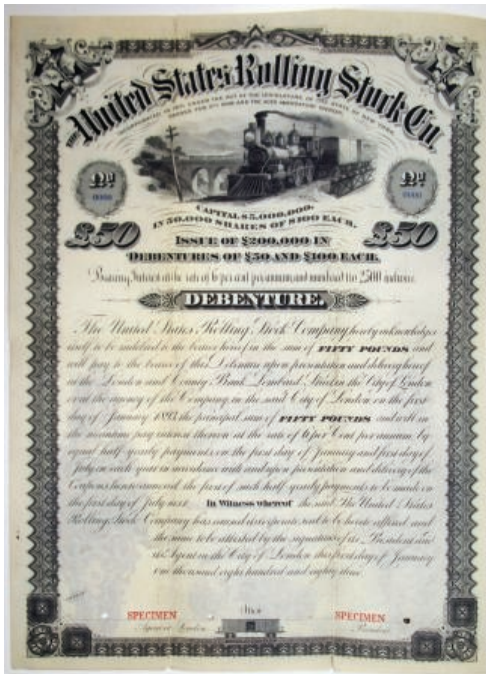 THE United States Rolling Stock Co.
INCORPORATED IN 1871 UNDER THE ACT OF THE LEGISLATURE OF THE STATE OF NEW YORK
No
No
CAPITAL $5,000,000.
IN 50,000 SHARES OF $100 EACH.
£50
£50
ISSUE OF $200,000 IN
DEBENTURES OF $50 AND $100 EACH,
Bearing Interest at the rate of 6 per cent per annum, and numbered 1 to 2,500 inclusive.
DEBENTURE.
The United States Rolling Stock Company hereby acknowledges
itself to be indebted to the bearer hereof in the sum of FIFTY POUNDS and
will pay to the bearer of this Debenture upon presentation and delivery hereof
at the London and County Bank, Lombard Street in the City of London
or at the agency of the Company in the said City of London on the first
day of January 1893 the principal sum of FIFTY POUNDS and will in
the meantime pay interest thereon at the rate of 6 per Cent per annum by
equal half-yearly payments on the first day of January and first day of
July in each year in accordance with and upon presentation and delivery of the
Coupons hereto annexed the first of such half-yearly payments to be made on
the first day of July next. In Witness whereof the said The United States
Rolling Stock Company has caused its corporate seal to be hereto affixed and
the same to be attested by the signatures of its President and
its Agent in the City of London this first day of January
one thousand eight hundred and eighty three
SPECIMEN
SPECIMEN
Agent in London
President